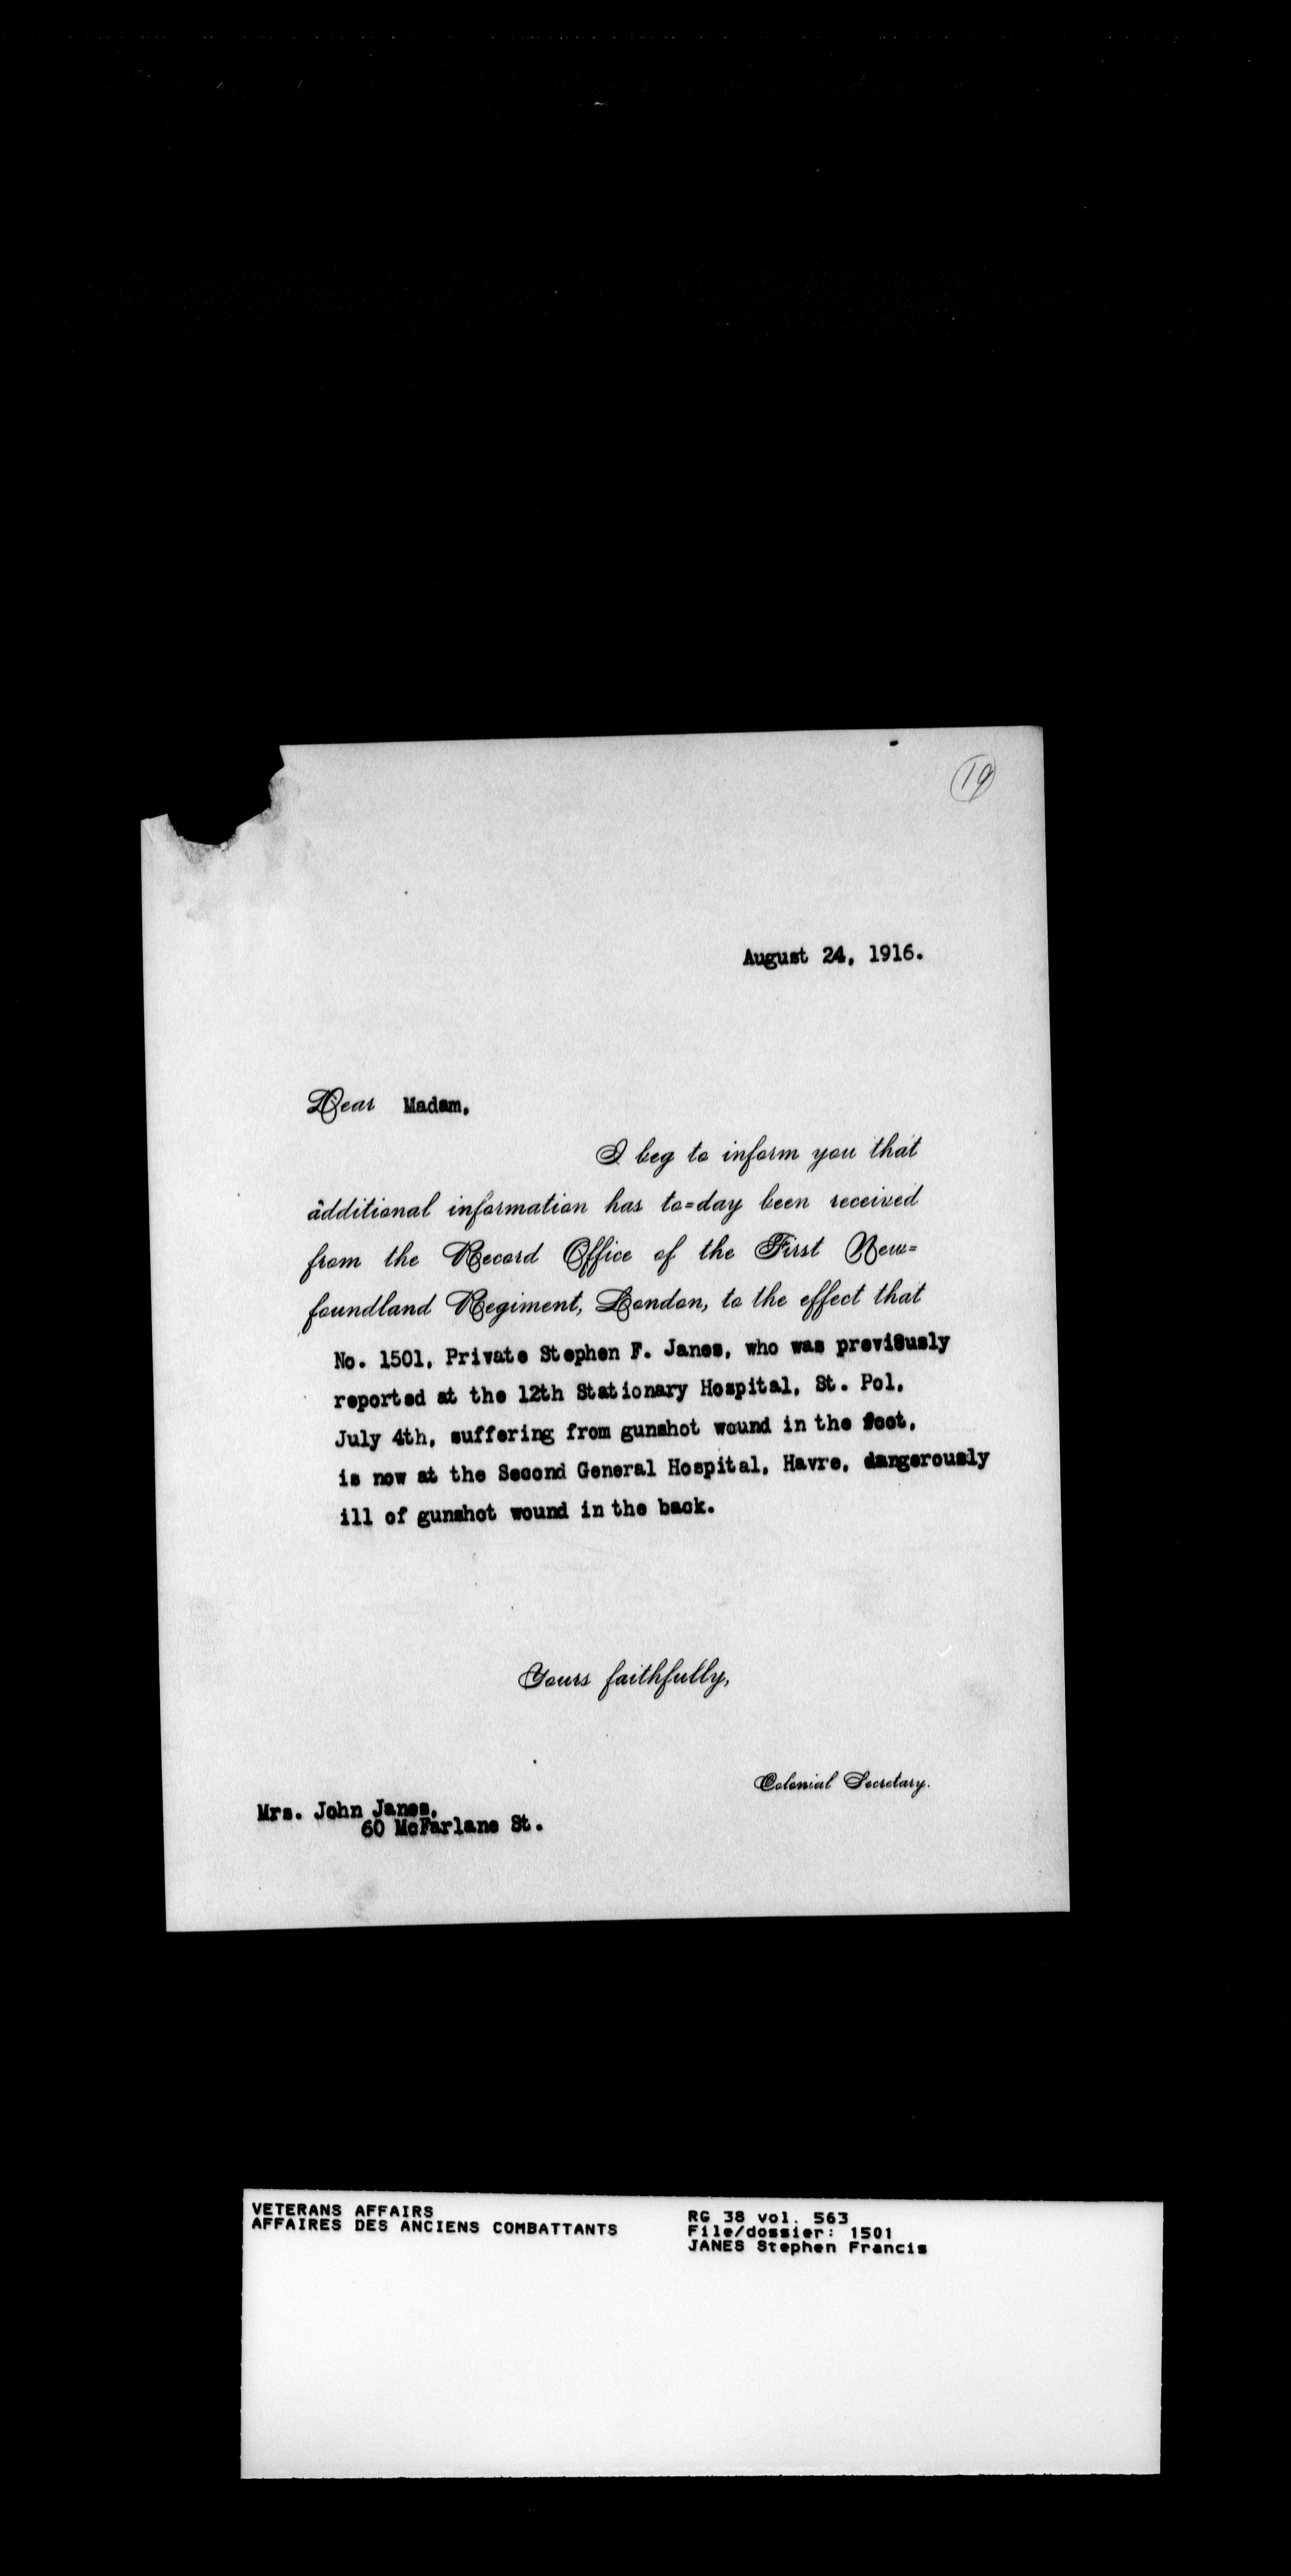 19
August 24, 1916.
Dear Madam,
I beg to inform you that
additional information has to=day been received
from the Record Office of the First New=
foundland Regiment, London, to the effect that
No. 1501, Private Stephen F. Janes, who was previously
reported at the 12th Stationary Hospital, St. Pol,
July 4th, suffering from gunshot wound in the foot,
is now at the Second General Hospital, Havre, dangerously
ill of gunshot wound in the back.
Yours faithfully,
Colonial Secretary.
Mrs. John Janes,
60 McFarlane St.
VETERANS AFFAIRS
AFFAIRES DES ANCIENS COMBATTANTS
RG 38 vol. 563
File/dossier: 1501
JANES Stephen Francis